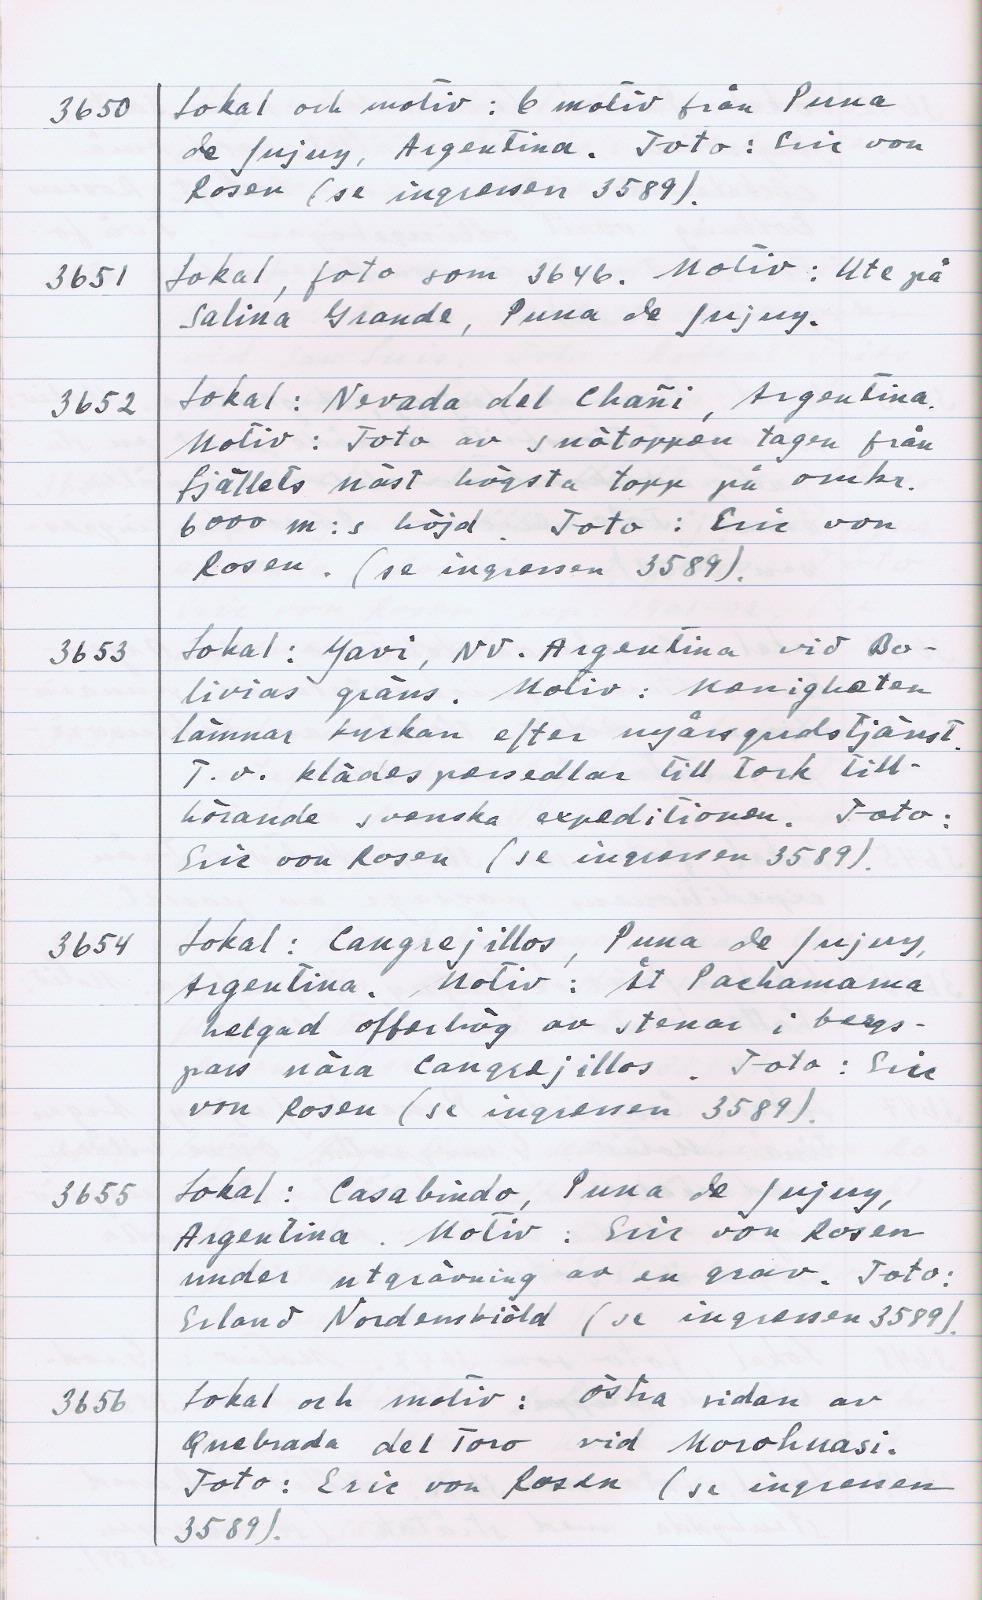 3650 Lokal och motiv : 6 motiv från Puna
de Jujuy, Argentina. Foto : Eric von
Rosen (se ingressen 3589).
3651 Lokal, foto som 3646. Motiv : Ute på
Salina Grande, Puna de Jujuy.
3652 Lokal : Nevada del Chañi, Argentina.
Motiv : Foto av snötoppen tagen från
fjällets näst högsta topp på omkr.
6000 m:s höjd. Foto : Eric von
Rosen. (se ingressen 3589).
3653 Lokal : Yavi, NV. Argentina vid Bo-
livias gräns. Motiv : Menigheten
lämnar kyrkan efter nyårsgudstjänst.
T.v. klädespersedlar till tork till-
hörande svenska expeditionen. Foto :
Eric von Rosen (se ingressen 3589).
3654 Lokal : Cangrejillos, Puna de Jujuy,
Argentina. Motiv : Åt Pachamama
helgad offerhög av stenar i bergs-
pass nära Cangrejillos. Foto : Eric
von Rosen (se ingressen 3589).
3655 Lokal : Casabindo, Puna de Jujuy,
Argentina. Motiv : Eric von Rosen
under utgrävning av en grav. Foto :
Erland Nordenskiöld (se ingressen 3589).
3656 Lokal och motiv : Östra sidan av
Quebrada del Toro vid Morohuasi.
Foto : Eric von Rosen (se ingressen
3589).